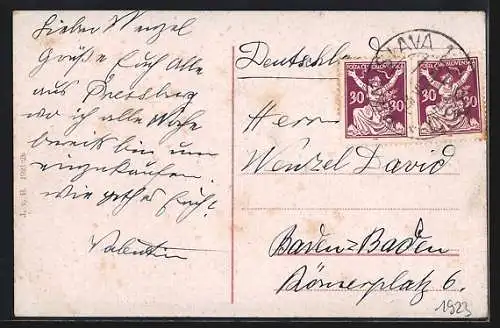 Lieber Wenzel
Grüße Euch Alle
aus Pressburg
wo ich alle Woche
bereits bin um
einzukaufen.
Wie geht es Euch?
Valentin
J. v. B. 1921-28
Deutschland
Herrn
Wenzel David
Baden=Baden
Römerplatz 6.
1923
LAVA 1
POŠTA ČESKOSLOVENSKÁ
30 30
POŠTA ČESKOSLOVENSKÁ
30 30